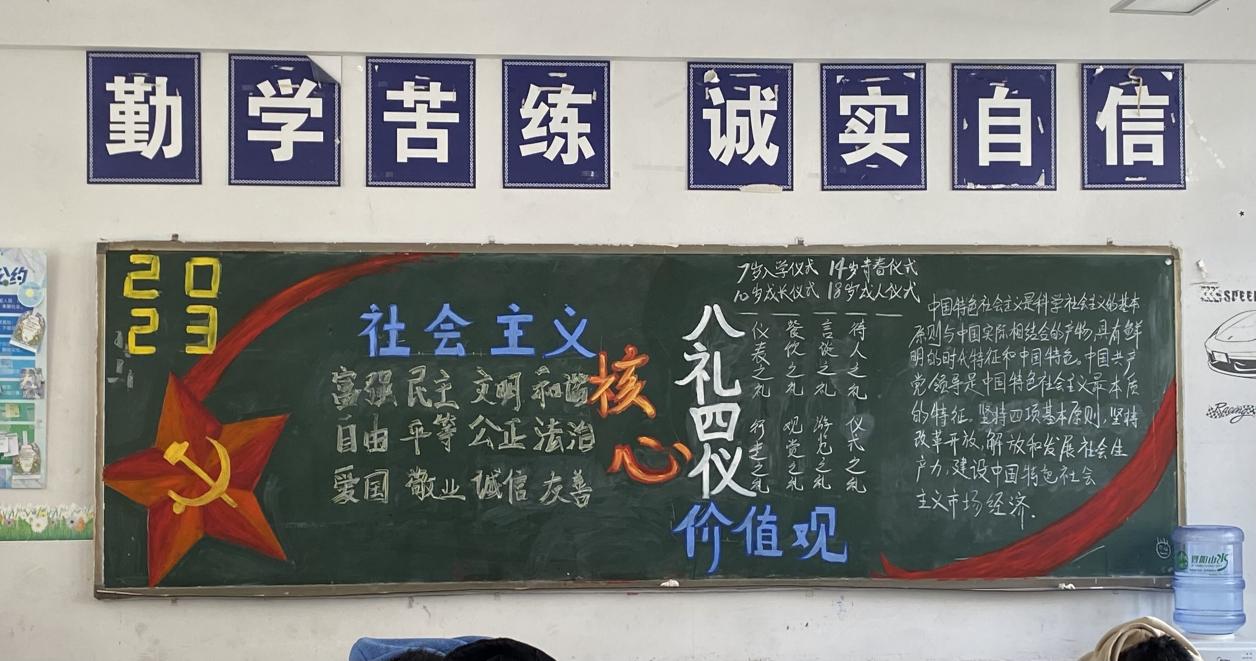 勤学苦练 诚实自信
公约
20
23
社会主义
核心
价值观
富强 民主 文明 和谐
自由 平等 公正 法治
爱国 敬业 诚信 友善
八礼四仪
7岁入学仪式 14岁青春仪式
10岁成长仪式 18岁成人仪式
仪表之礼
餐饮之礼
言谈之礼
待人之礼
行走之礼
观赏之礼
游览之礼
仪式之礼
中国特色社会主义是科学社会主义的基本
原则与中国实际相结合的产物,具有鲜
明的时代特征和中国特色。中国共产
党领导是中国特色社会主义最本质
的特征。坚持四项基本原则,坚持
改革开放,解放和发展社会生
产力,建设中国特色社会
主义市场经济.
SPEE
Racing